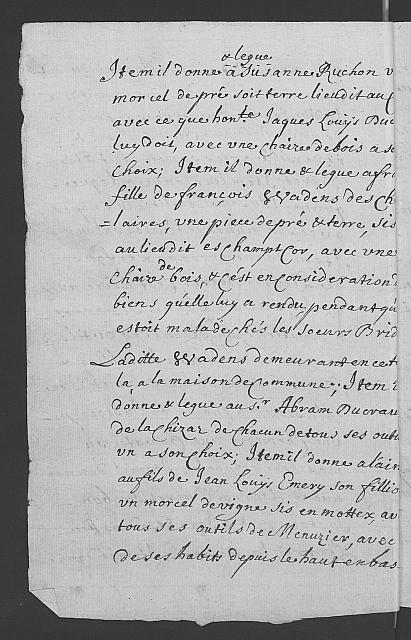 & legue
Item il donne à Susanne Ruchon v
morcel de pré soit terre lieudit au C
avec ce que hon.te Jaques Louys Duc
luy doit, avec vne chaize de bois a so
choix; Item il donne & legue a fra
fille de françois Wadens des Ch
=laires, vne piece de pré & terre, sis
au lieudit es Champt Cor, avec vne
de
chaize bois, & c'est en consideration
biens qu'elle luy a rendu, pendant qu'
estoit malade chés les soeurs Brid
Laditte Wadens demeurant en cet
la, a la maison de Commune; Item i
donne & legue au s.r Abram Ducrau
de la Chizaz de chacun de tous ses outi
vn a son Choix; Item il donne a lain
au fils de Jean Louys Emery son fillio
vn morcel de vigne sis en mottex, av
tous ses outils de Menuzier, avec
de ses habits depuis le haut en bas